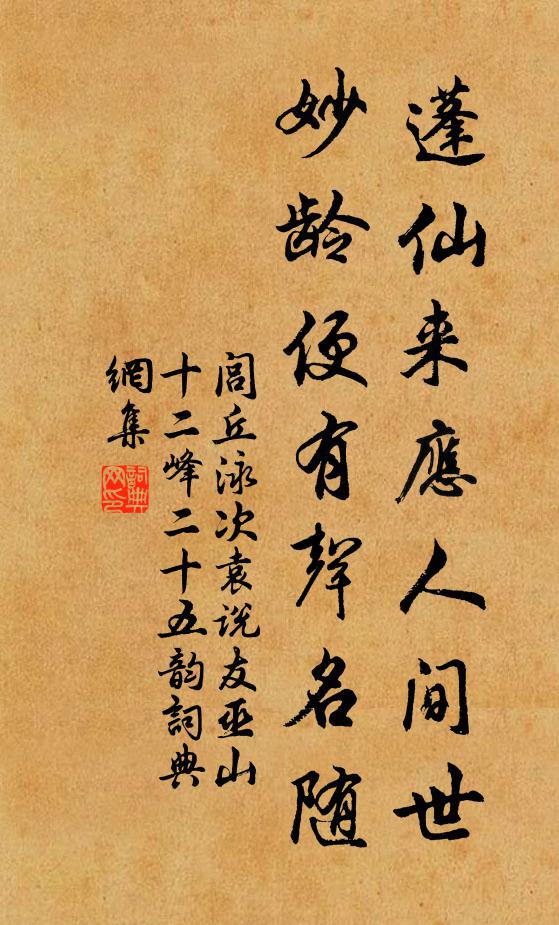 蓬仙来應人間世
妙龄便有聲名随
閭丘泳次袁说友巫山
十二峰二十五韵詞典
網集
詞典
网印